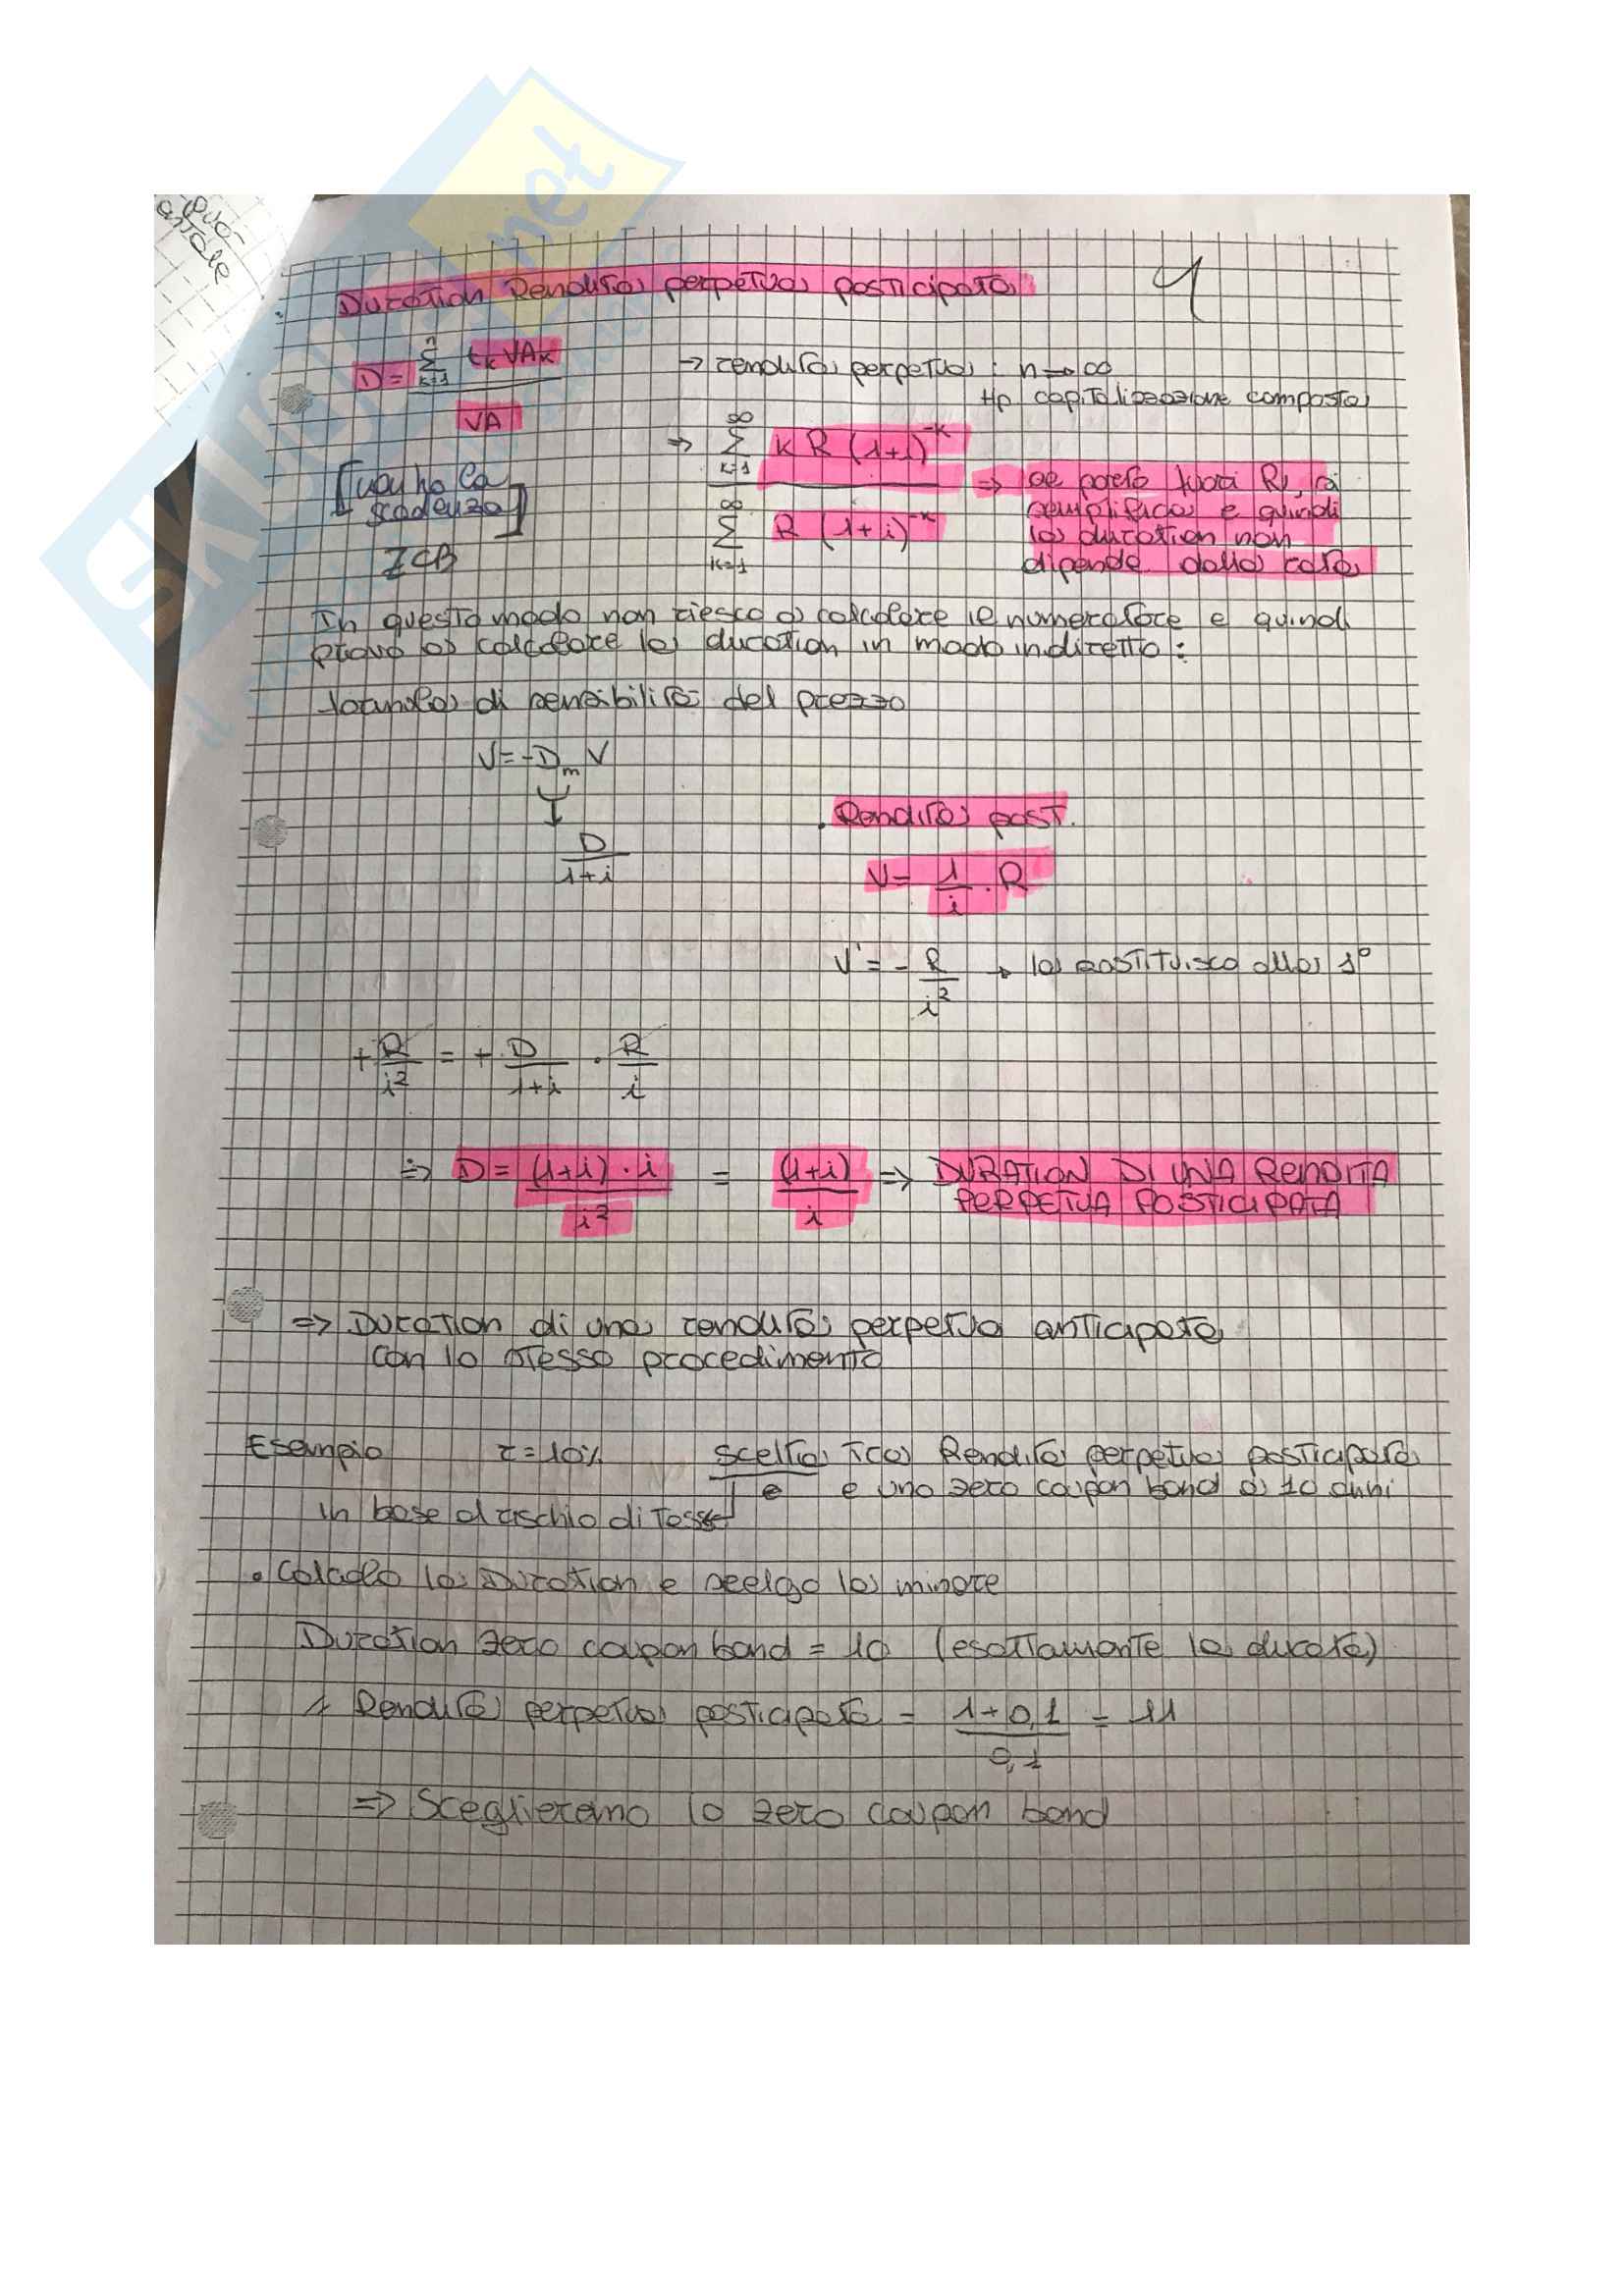 quo-
aritale
Duration Rendita perpetua posticipata
1
D = n Σ k=1 tk VAk / VA
→ rendita perpetua: n→∞
Hp capitalizzazione composta
⇒ ∞ Σ k=1 k R (1+i)^-k / ∞ Σ k=1 R (1+i)^-k
⇒ se porto fuori R, si
semplifica e quindi
la duration non
dipende dalla rata
[non ha la
scadenza]
ZCB
In questo modo non riesco a calcolare il numeratore e quindi
provo a calcolare la duration in modo indiretto:
formula di sensibilità del prezzo
V = -Dm V
↓
D / 1+i
. Rendita post.
V = 1/i · R
V' = - R/i² → la sostituisco alla 1°
+ R/i² = + D/1+i · R/i
⇒ D = (1+i) · i / i² = (1+i) / i ⇒ DURATION DI UNA RENDITA
PERPETUA POSTICIPATA
⇒ Duration di una rendita perpetua anticipata
con lo stesso procedimento
Esempio r = 10% scelta tra Rendita perpetua posticipata
e uno zero coupon bond a 10 anni
in base al rischio di tasso
• Calcolo la Duration e scelgo la minore
Duration zero coupon bond = 10 (esattamente la durata)
Rendita perpetua posticipata = 1+0,1 / 0,1 = 11
⇒ Sceglieremo lo zero coupon bond